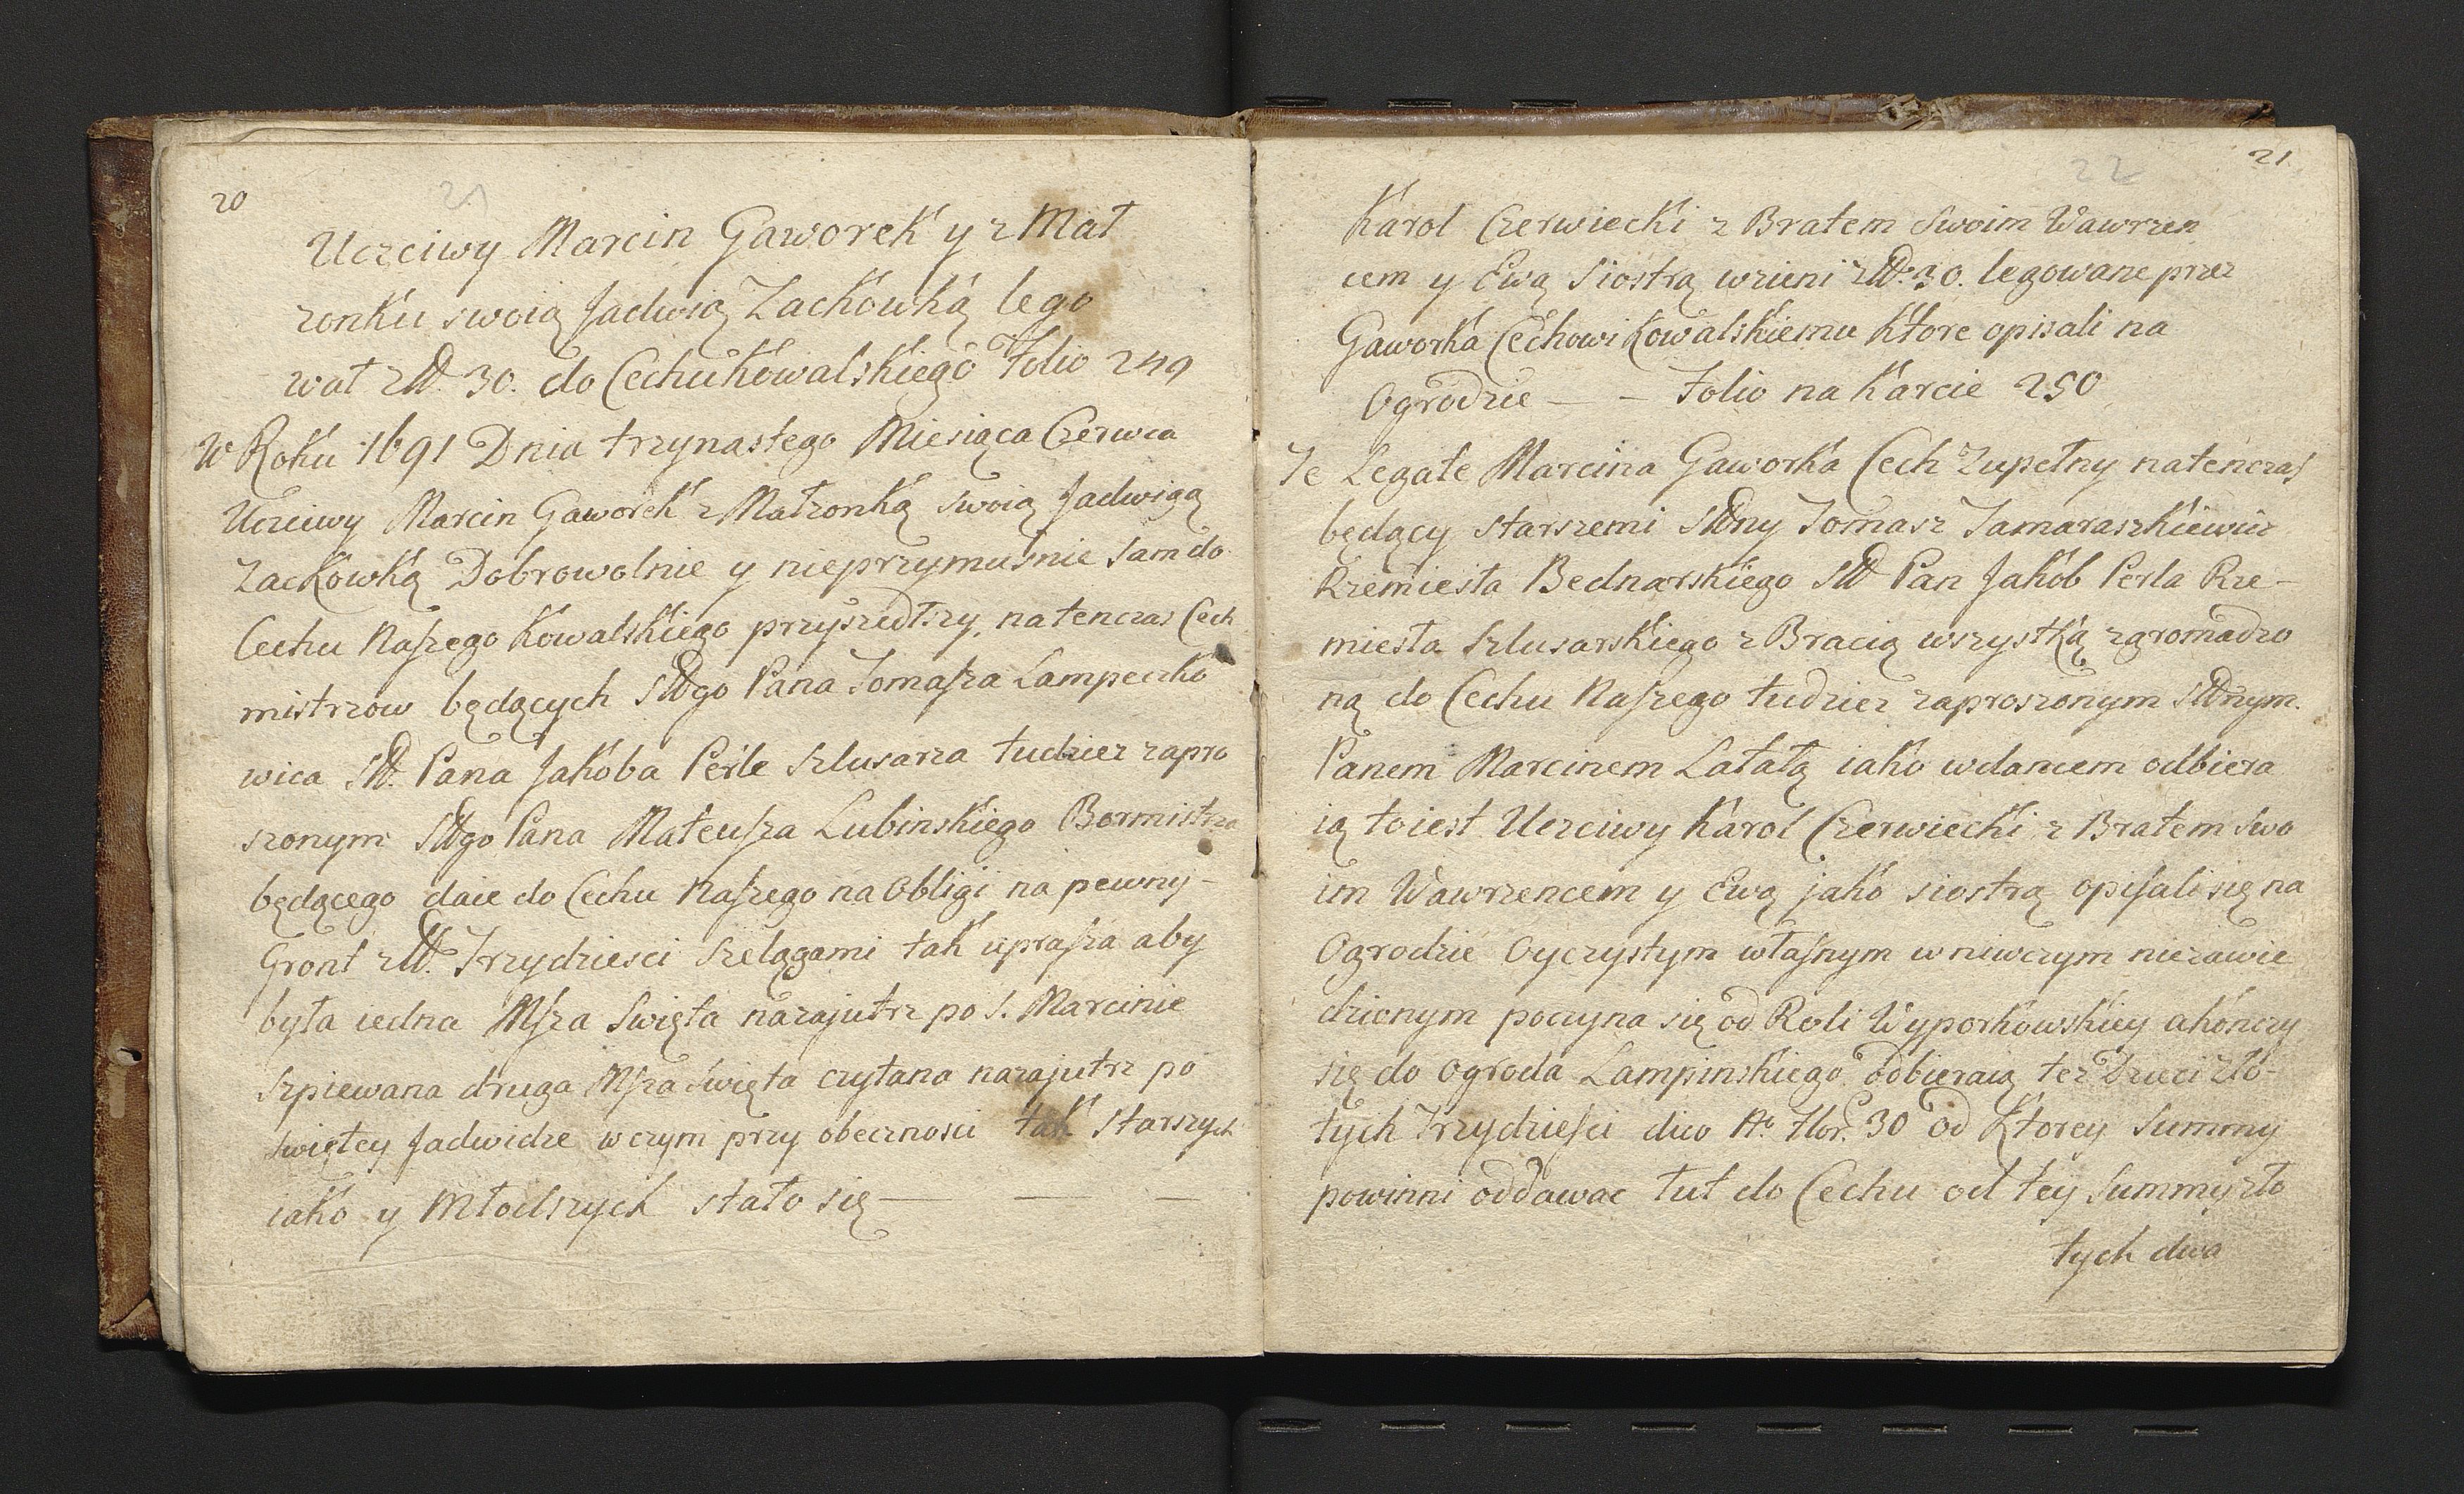 20
21
Uczciwy Marcin Gaworek y z Mał
zonku swoią Jadwią Zackowką lego
wał zł. 30. do Cechu Kowalskiego Folio 249
W Roku 1691 Dnia trzynastego Miesiąca Czerwca
Uczciwy Marcin Gaworek z Małzonką swoią Jadwigą
Zackowką Dobrowolnie y nieprzymusnie sam do
Cechu Naszego Kowalskiego przyszedłszy, natenczas Cech
mistrzow będących Sł°go Pana Tomasza Lampeczko
wica Sł. Pana Jakoba Perle Szlusarza tudziez zapro
szonym Sł°go Pana Mateusza Lubinskiego Bormistrza
będącego daie do Cechu Naszego na Obligi na pewny-
Gront zł. Trzydziesci szelągami tak uprasza aby
była iedna Msza Swięta nazajutrz po S. Marcinie
Szpiewana druga Msza swięta czytana nazajutrz po
swiętey Jadwidze w czym przy obecznosci tak Starszych
iako y Młodszych stało się — — —
22
21
Karol Czerwiecki z Bratem Swoim Wawrzen
cem y Ewą Siostrą wzieni zł. 30. legowane przez
Gaworka Cechowi Kowalskiemu Ktore opisali na
Ogrodzie — — Folio na Karcie 250
Te Legate Marcina Gaworka Cech Zupełny natenczas
będący starszemi Słny Tomasz Tamaraszkiewicz
Rzemiesła Bednarskiego Sł Pan Jakob Perla Rze-
miesła Szlusarskiego z Bracią wszystką zgromadzo
ną do Cechu Naszego tudziez zaproszonym Słnym.
Panem Marcinem Latałą iako wdamem odbiera
ią toiest Uczciwy Karol Czerwiecki z Bratem swo
im Wawrzencem y Ewą jako siostrą opisali się na
Ogrodzie Oyczystym własnym w niwczym niezawie
dzionym poczyna się od Roli Wyporkowskiey akonczy
się do Ogroda Lampinskiego odbieraią tez Dzieci zło-
tych Trzydziesci dico N° flor. 30 od Ktorey Summy
powinni oddawac tut do Cechu od tey Summy zło
tych dwa